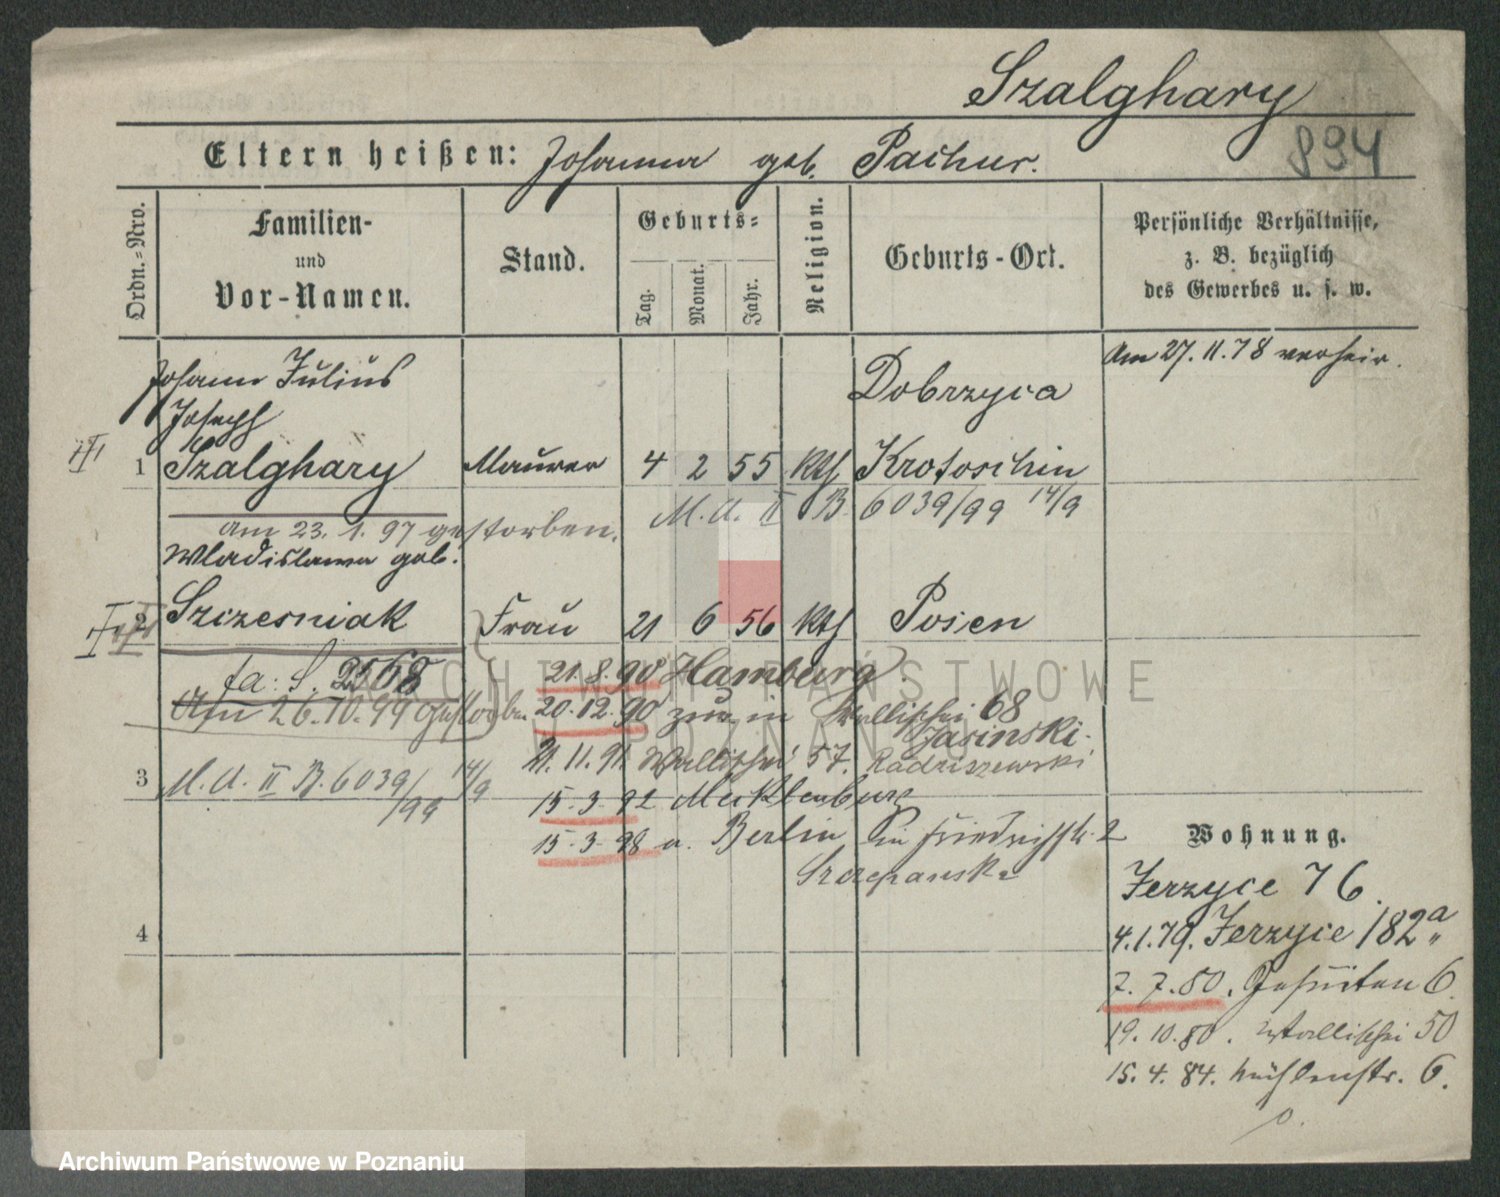 Szalghary
894
Eltern heißen: Johanna geb. Pachur.
Ordn.-Nro.
Familien- und Vor-Namen.
Stand.
Geburts-
Tag. Monat. Jahr.
Religion.
Geburts-Ort.
Persönliche Verhältnisse, z. B. bezüglich des Gewerbes u. s. w.
Am 27. 11. 78 verheir.
Johann Julius
Joseph
Dobrzyca
1 Szalghary Maurer 4 2 55 kth Krotoschin
M. A. II B. 6039/99 14/9
am 23. 1. 97 gestorben.
Wladislawa geb.
2 Szczesniak Frau 21 6 56 kth Posen
fa: S. 2568
21. 8. 90 Hamburg.
Am 26. 10. 99 gestorben
20. 12. 90 zur in Wallischei 68
Jasinski.
21. 11. 91. Wallischei 57. Radziszewski
3 M. A. II B. 6039/99 14/9
15. 3. 92 Mecklenburg
15. 3. 98 a. Berlin Friedrichstr. 2
Szczepanska
4
Wohnung.
Jerzyce 76.
4. 1. 79. Jerzyce 182a
7. 7. 80. Jesuiten 6.
19. 10. 80. Wallischei 50
15. 4. 84. Mühlenstr. 6.
ARCHIWUM PAŃSTWOWE
W POZNANIU
Archiwum Państwowe w Poznaniu